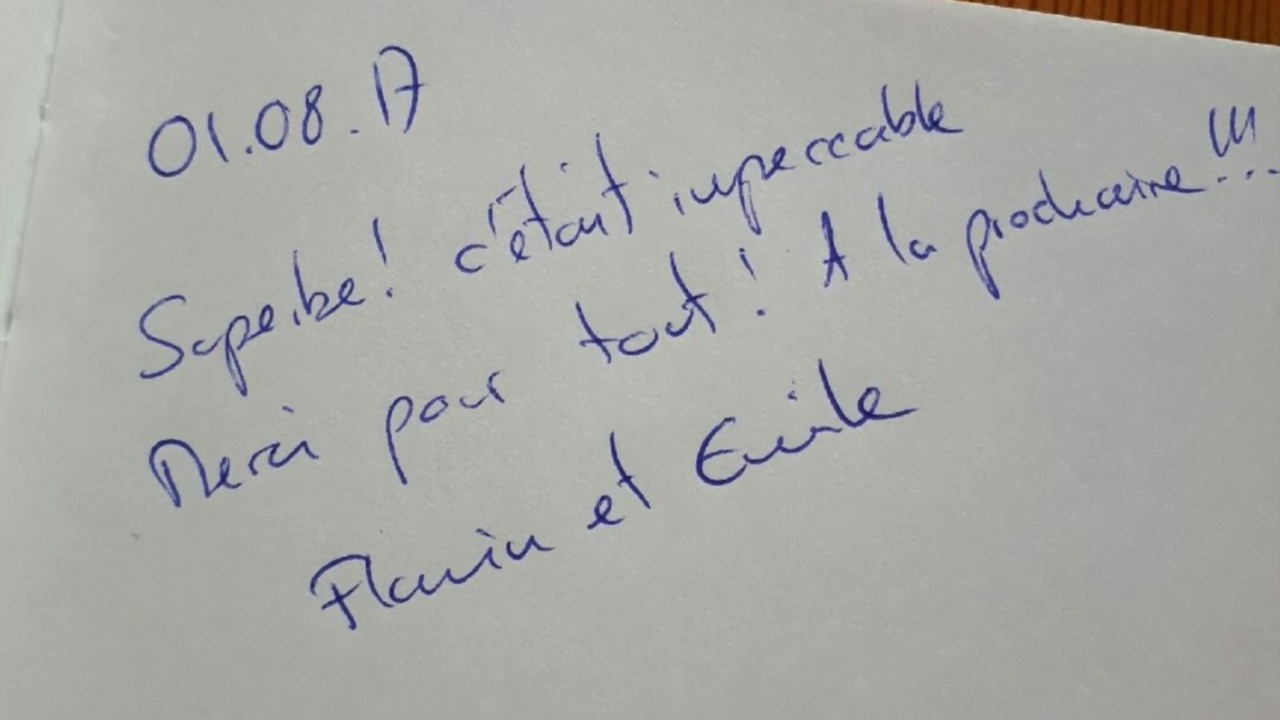 01.08.17
Superbe! c'était impeccable
Merci pour tout! A la prochaine!!!
Flavien et Emile